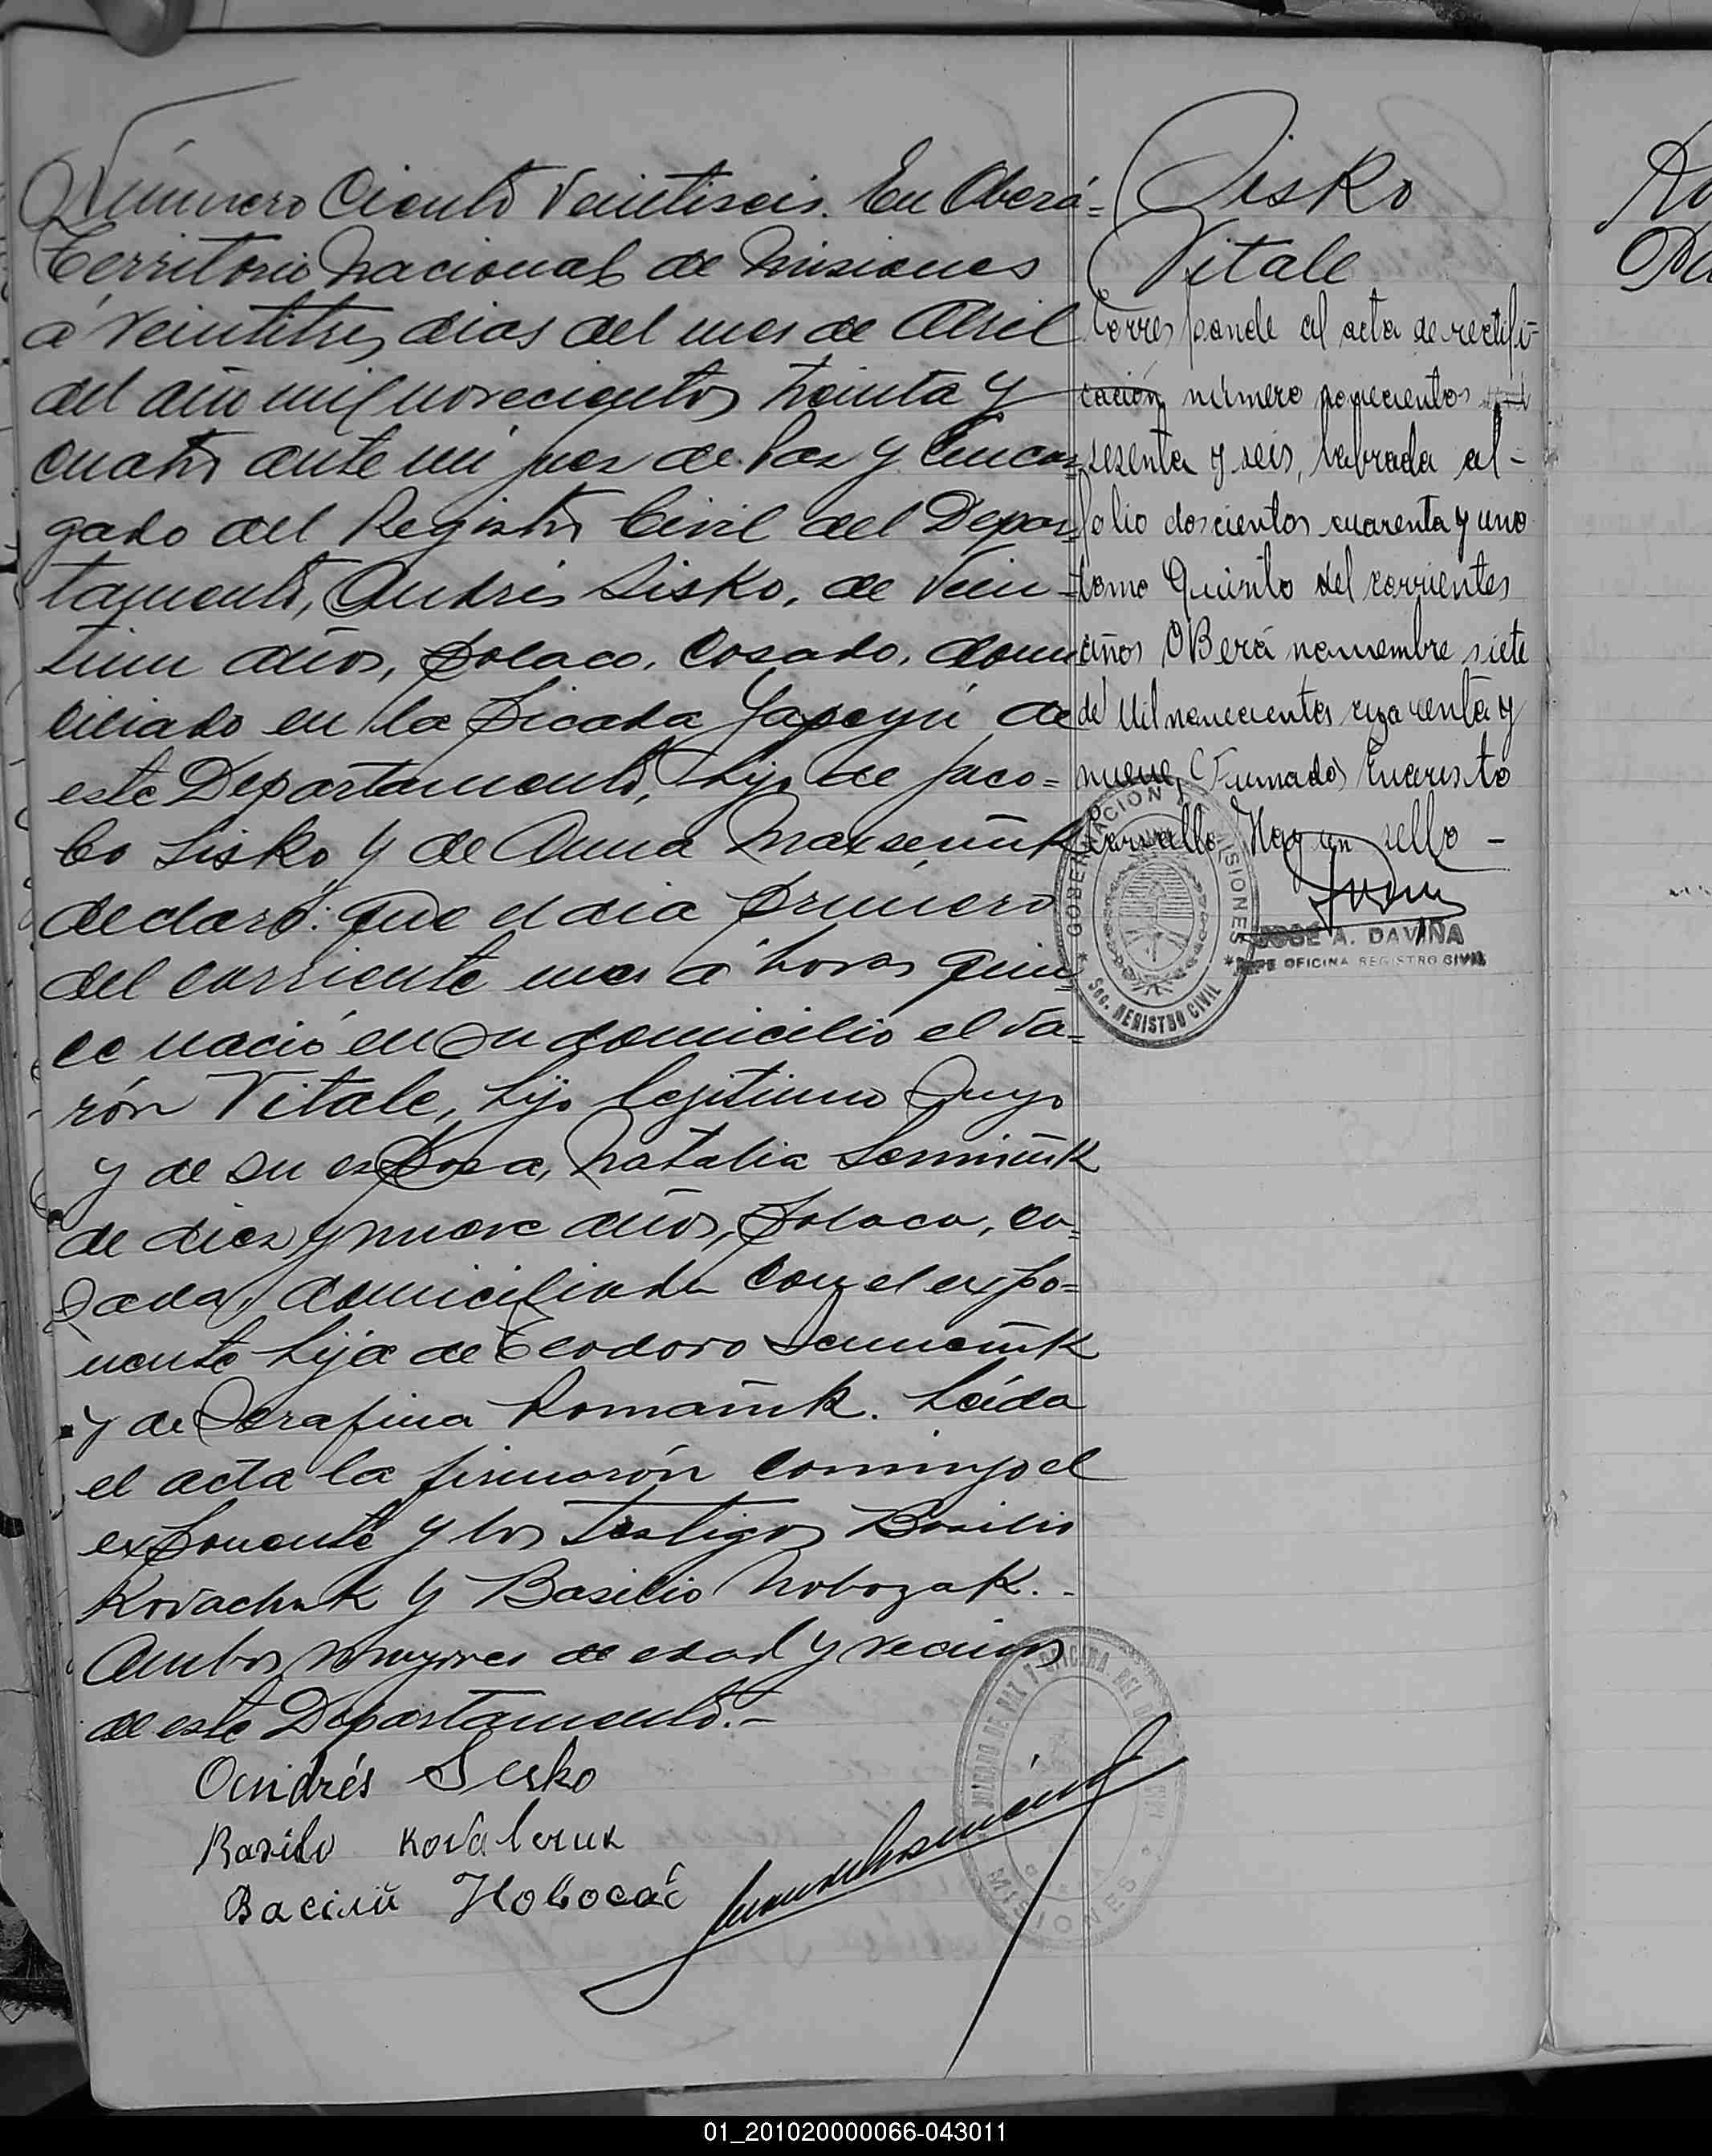 Número Ciento Veintiseis. En Oberá-
Territorio Nacional de Misiones
á veintitres dias del mes de Abril
del año mil novecientos treinta y
cuatro ante mi juez de Paz y Encar-
gado del Registro Civil del Depar-
tamento, Andrés Sisko, de Vein-
tiun años, polaco, casado, domi
ciliado en la Picada Yapeyú de
este Departamento, hijo de Jaco-
bo Sisko y de Anna
declaró: que el dia primero
del corriente mes á horas quin
ce nació en su domicilio el va-
rón Vitale, hijo legitimo suyo
y de su esposa, Natalia
de diez y nueve años, polaca, ca-
sada, domiciliada con el expo-
nente hija de Teodoro
y de Serafina Romañuk. Leida
el acta la firmarón conmigo el
exponente y los testigos Basilio
Kovachuk y Basilio Nobozak.-
Ambos mayores de edad y vecinos
de este Departamento.-
Andrés Sesko
Basilo
Васілій Новосад
Sisko
Vitale
Corresponde al acta de rectifi-
cación número novecientos
sesenta y seis, labrada al-
folio doscientos cuarenta y uno
tomo Quinto del corrientes
años OBerá noviembre siete
de Mil novecientos cuarenta y
nueve, (Firmado) Evaristo
Carvallo Hay un sello -
GOBERNACION MISIONES
Sec. REGISTRO CIVIL
JOSE A. DAVIÑA
JEFE OFICINA REGISTRO CIVIL
JUZGADO DE PAZ Y
MISIONES
01_201020000066-043011